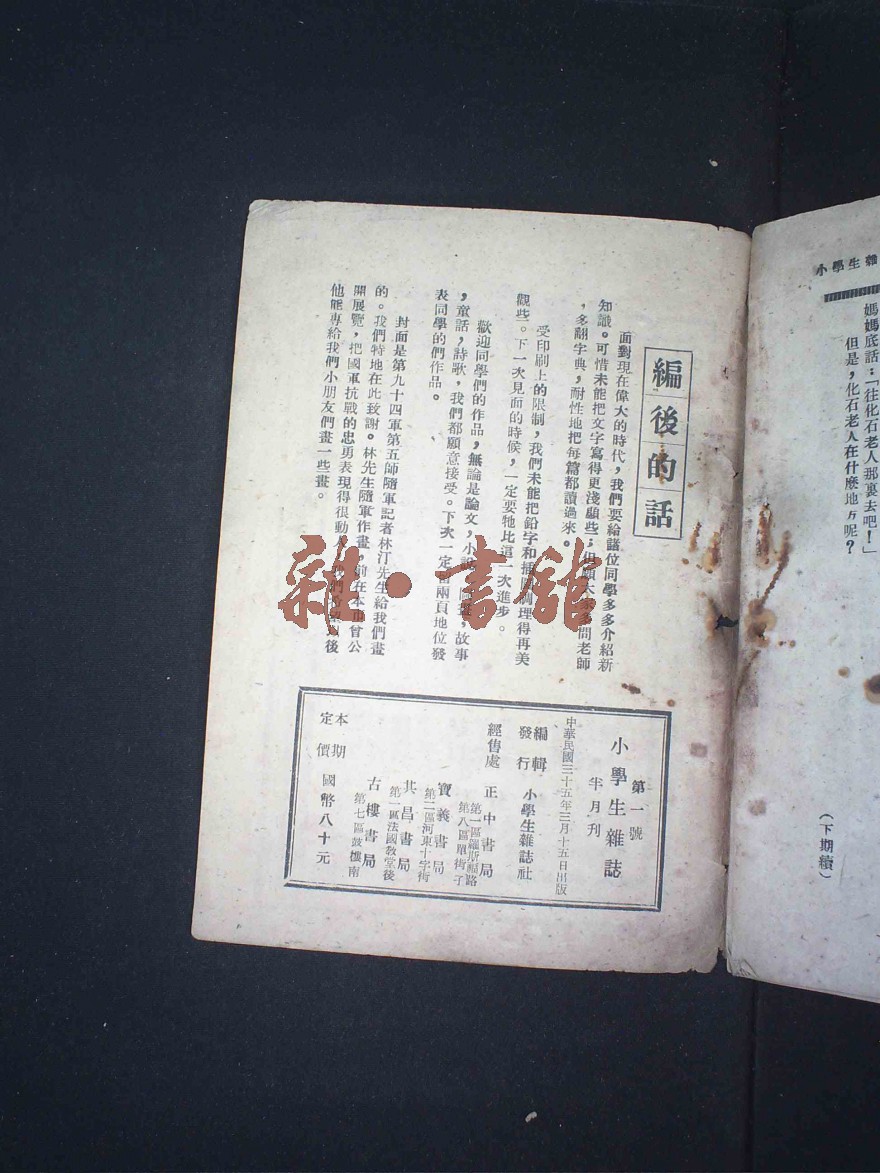 小學生雜
媽媽底話：「往化石老人那裏去吧！」
但是，化石老人在什麽地方呢？
（下期續）
編後的話
面對現在偉大的時代，我們要給諸位同學多多介紹新
知識。可惜未能把文字寫得更淺顯些；但願大家多問老師
，多翻字典，耐性地把每篇都讀過來。
受印刷上的限制，我們未能把鉛字和插圖調理得再美
觀些。下一次見面的時候，一定要牠比這一次進步。
歡迎同學們的作品，無論是論文，小說，故事
，童話，詩歌，我們都願意接受。下次一定留兩頁地位發
表同學的們作品。
封面是第九十四軍第五師隨軍記者林汀先生給我們畫
的。我們特地在此致謝。林先生隨軍作畫，前在本市曾公
開展覽，把國軍抗戰的忠勇表現得很動人，我們希望以後
他能專給我們小朋友們畫一些畫。
第一號
小學生雜誌
半月刊
中華民國三十五年三月十五日出版
編輯
發行
小學生雜誌社
經售處
正中書局
第一區羅斯福路
第八區單街子
寶義書局
第二區河東十字街
其昌書局
第一區法國教堂後
古樓書局
第七區鼓樓南
本期
定價
國幣八十元
雜·書館